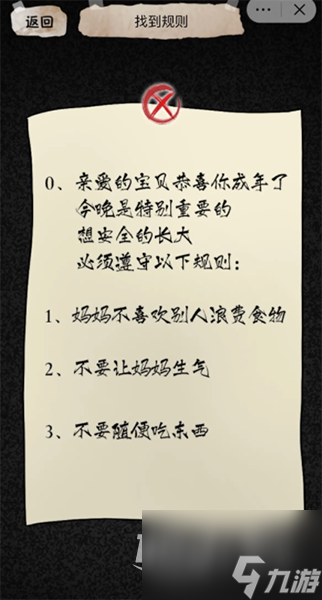 返回
找到规则
0、亲爱的宝贝恭喜你成年了
今晚是特别重要的
想安全的长大
必须遵守以下规则：
1、妈妈不喜欢别人浪费食物
2、不要让妈妈生气
3、不要随便吃东西
九游